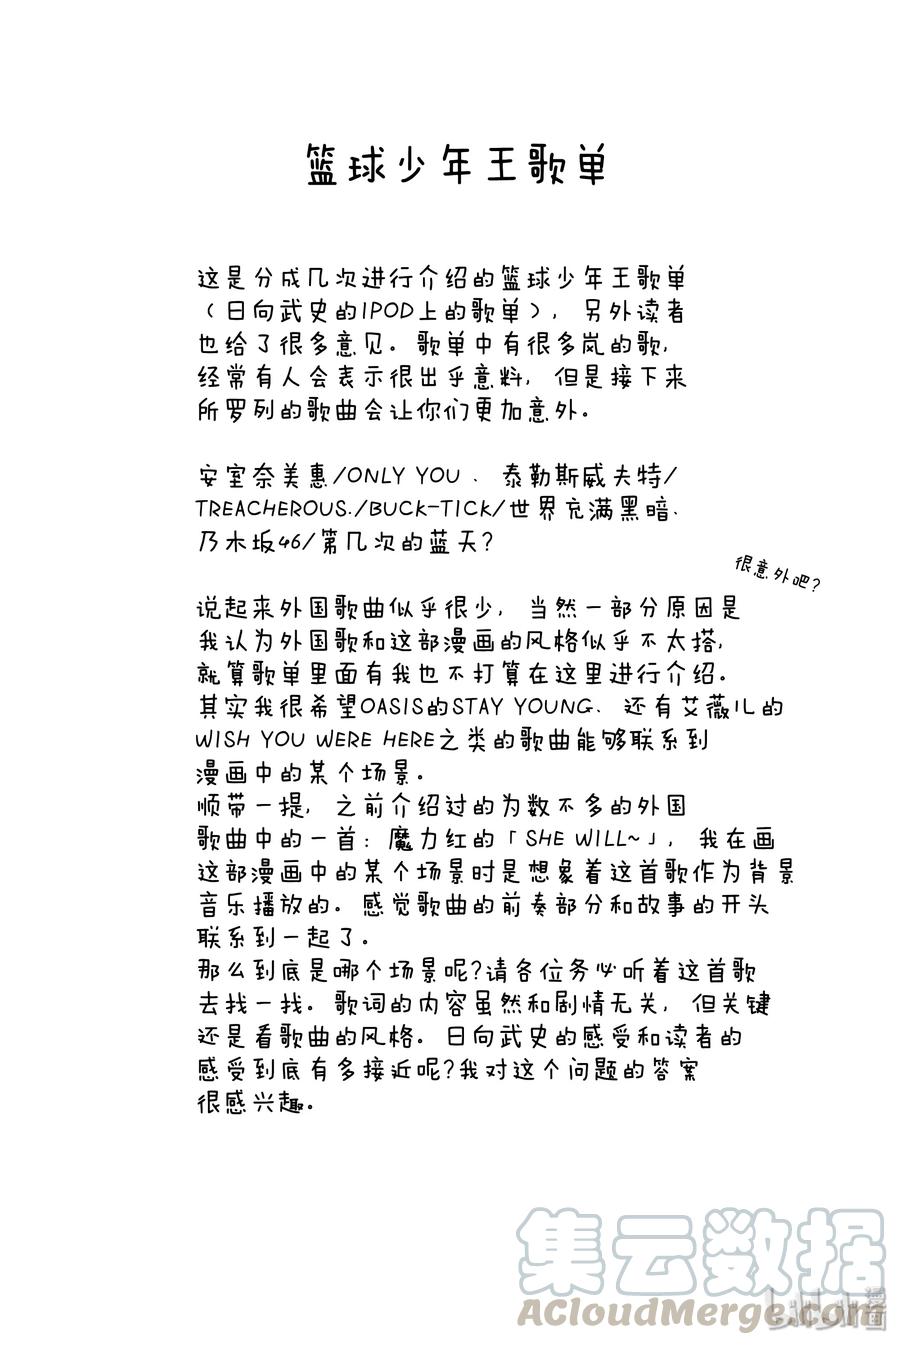 篮球少年王歌单
这是分成几次进行介绍的篮球少年王歌单
（日向武史的IPOD上的歌单），另外读者
也给了很多意见。歌单中有很多岚的歌，
经常有人会表示很出乎意料，但是接下来
所罗列的歌曲会让你们更加意外。
安室奈美惠/ONLY YOU、泰勒斯威夫特/
TREACHEROUS./BUCK-TICK/世界充满黑暗、
乃木坂46/第几次的蓝天？
很意外吧？
说起来外国歌曲似乎很少，当然一部分原因是
我认为外国歌和这部漫画的风格似乎不太搭，
就算歌单里面有我也不打算在这里进行介绍。
其实我很希望OASIS的STAY YOUNG、还有艾薇儿的
WISH YOU WERE HERE之类的歌曲能够联系到
漫画中的某个场景。
顺带一提，之前介绍过的为数不多的外国
歌曲中的一首：魔力红的「SHE WILL~」，我在画
这部漫画中的某个场景时是想象着这首歌作为背景
音乐播放的。感觉歌曲的前奏部分和故事的开头
联系到一起了。
那么到底是哪个场景呢?请各位务必听着这首歌
去找一找。歌词的内容虽然和剧情无关，但关键
还是看歌曲的风格。日向武史的感受和读者的
感受到底有多接近呢?我对这个问题的答案
很感兴趣。
集云数据
ACloudMerge.com
bilibili漫画